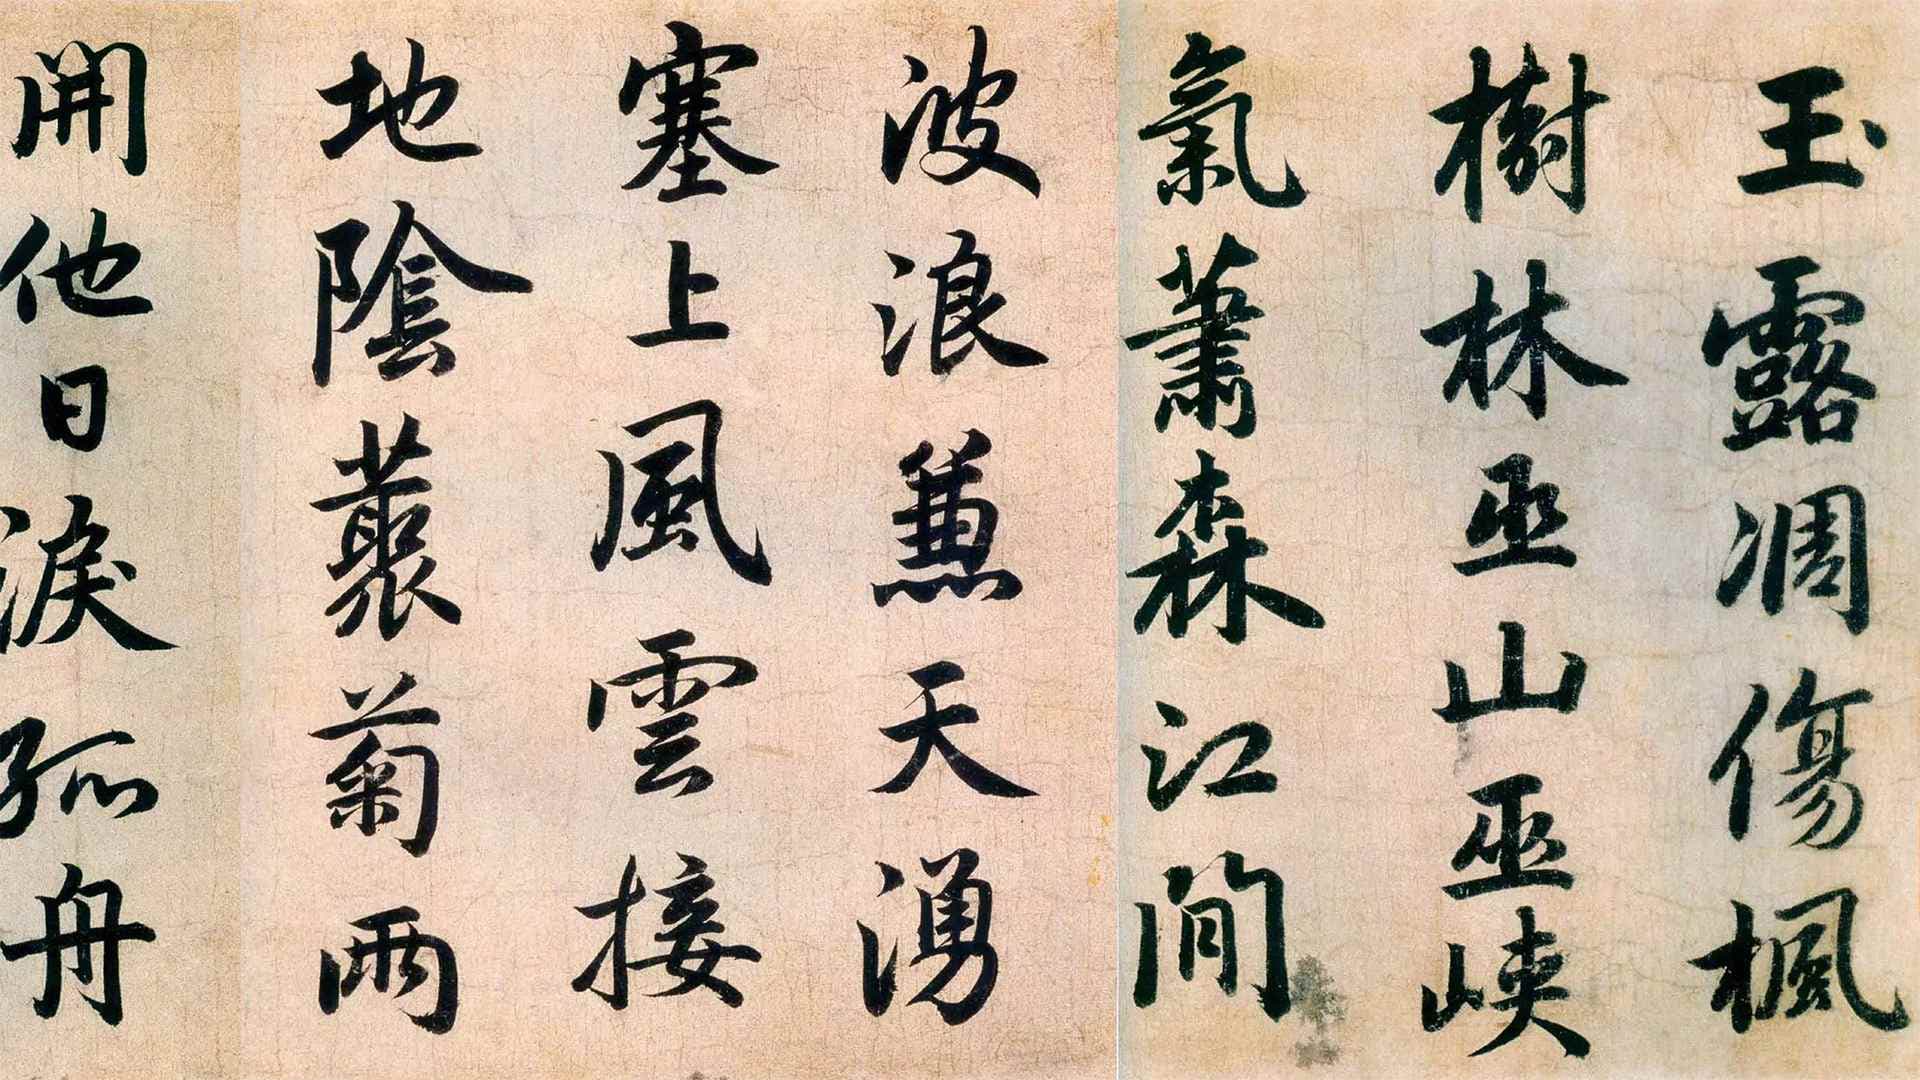 玉露凋傷楓
樹林巫山巫峽
氣蕭森江間
波浪兼天湧
塞上風雲接
地陰藂菊兩
開他日淚孤舟